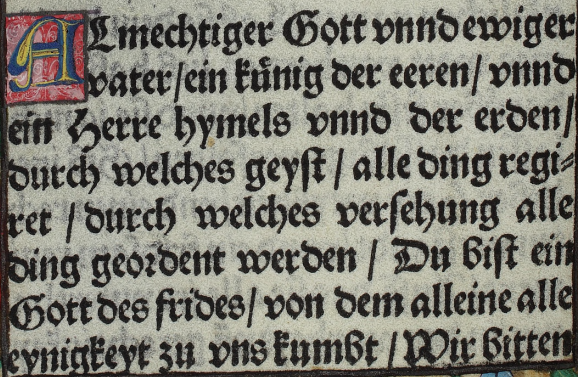 ALmechtiger Gott vnnd ewiger
vater/ein künig der eeren/ vnnd
ein Herre hymels vnnd der erden/
durch welches geyſt / alle ding regi⸗
ret / durch welches verſehung alle
ding geordent werden / Du biſt ein
Gott des frides/ von dem alleine alle
eynigkeyt zu vns kumbt / Wir bitten